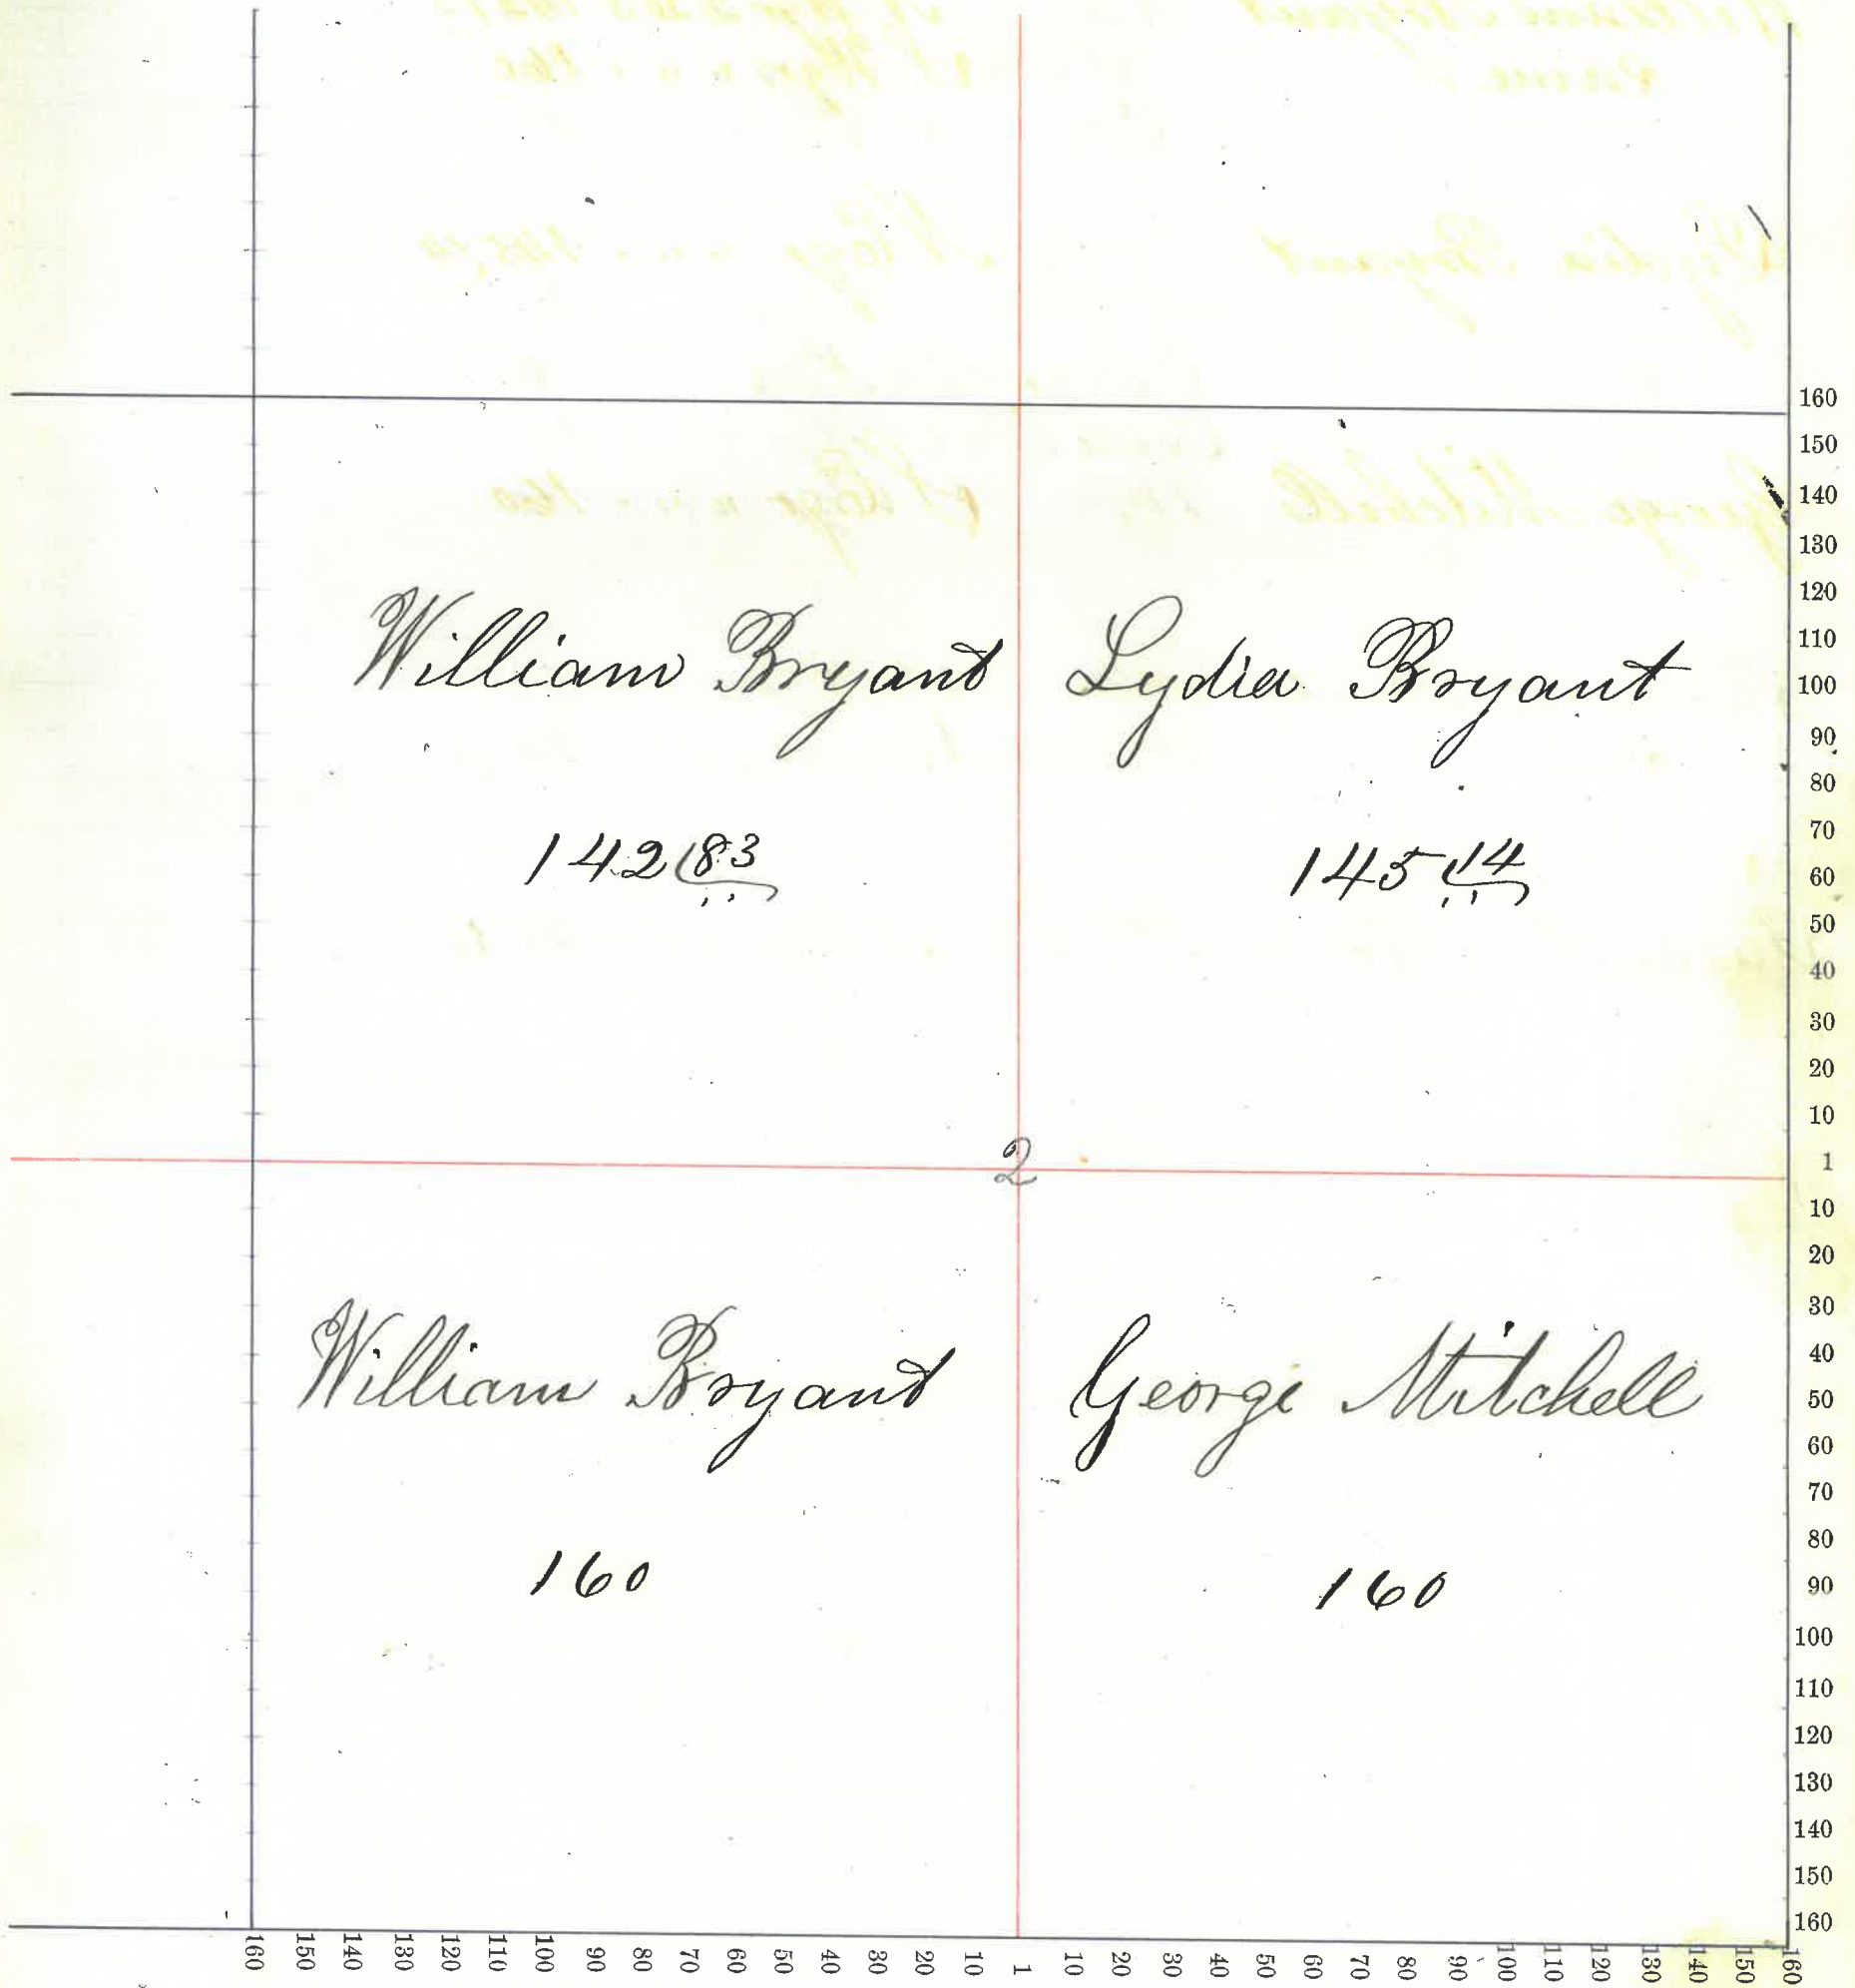 William Bryant Lydia Bryant
142 83 145 14
2
William Bryant George Mitchell
160 160
160
150
140
130
120
110
100
90
80
70
60
50
40
30
20
10
1
10
20
30
40
50
60
70
80
90
100
110
120
130
140
150
160
160 150 140 130 120 110 100 90 80 70 60 50 40 30 20 10 1 10 20 30 40 50 60 70 80 90 100 110 120 130 140 150 160